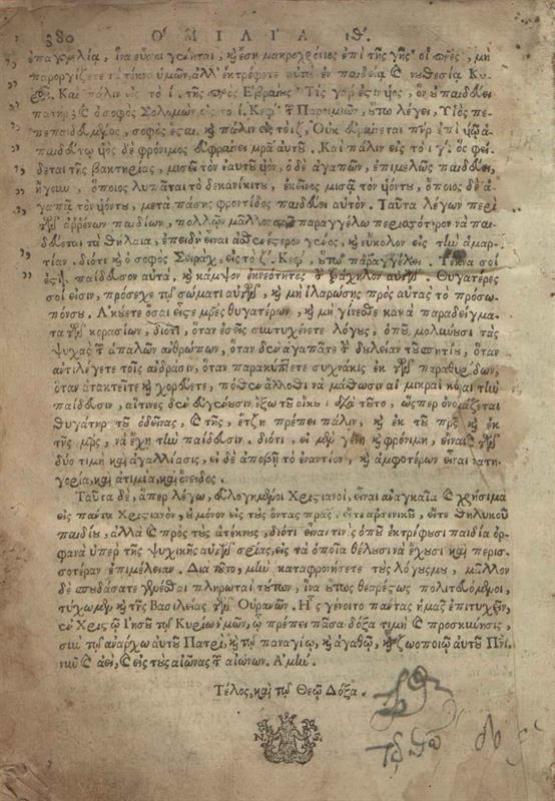 380 Ὁ Μ Ι Λ Ι Α ιθ'.
ἐπαγγελία, ἵνα εὖ σοι γένηται, καὶ ἔσῃ μακροχρόνιος ἐπὶ τῆς γῆς· οἱ πρες, μὴ
παροργίζετε τὰ τέκνα ὑμῶν, ἀλλ' ἐκτρέφετε αὐτὰ ἐν παιδείᾳ καὶ νουθεσίᾳ Κυ-
ρίου. Καὶ πάλιν εἰς τὸ ι. τῆς πρὸς Ἑβραίους· Τίς γάρ ἐστιν ὑὸς, ὃν οὐ παιδεύει
πατήρ; καὶ ὁ σοφὸς Σολομὼν εἰς τὸ ι. Κεφ. τῶν Παροιμιῶν, οὕτω λέγει, Υἱὸς πε-
πεπαιδευμένος, σοφὸς ἔσται. καὶ πάλιν εἰς τὸ ιζ', Οὐκ εὐφραίνεται πατὴρ ἐπὶ υἱῷ ἀ-
παιδεύτῳ υἱὸς δὲ φρόνιμος εὐφραίνει μρα αὐτοῦ. Καὶ πάλιν εἰς τὸ ιγ'. ὃς φεί-
δεται τῆς βακτηρίας, μισεῖ τὸν ἑαυτοῦ υἱὸν, ὁ δὲ ἀγαπῶν, ἐπιμελῶς παιδεύει,
ἤγουν, ὅποιος λυπᾶται τὸ δεκανίκιτου, ἐκεῖνος μισᾷ τὸν υἱόντου, ὅποιος δὲ ἀ-
γαπᾷ τὸν υἱόντου, μετὰ πάσης φροντίδος παιδεύει αὐτόν. Ταῦτα λέγων περὶ
τῶν ἀρρένων παιδίων, πολλῷ μᾶλλον παραγγέλω περισσότερον νὰ παι-
δεύεται τὰ θήλαια, ἐπειδὴ εἶναι ἀσθενέστερον γένος, καὶ εὔκολον εἰς τὴν ἁμαρ-
τίαν. διότι καὶ ὁ σοφὸς Σειρὰχ, εἰς τὸ ζ'. Κεφ. οὕτω παραγγέλλει. Τέκνα σοί
ἐστι, παίδευσον αὐτὰ, καὶ κάμψον ἐκ νεότητος τὸν τράχηλον αὐτῶν. Θυγατέρες
σοί εἰσιν, πρόσεχε τῷ σώματι αὐτῶν, καὶ μὴ ἱλαρώσῃς πρὸς αὐτὰς τὸ πρόσω-
πόνσου. Ἀκούετε ὅσαι εἶστε μρες θυγατέρων, καὶ μὴ γίνεσθε κακὰ παραδείγμα-
τα τῶν κορασίων, διότι, ὅταν ἐσεῖς συντυχένετε λόγους, ὁποῦ μολύνουσι τὰς
ψυχὰς τῶν ἁπαλῶν ἀνθρώπων, ὅταν δὲν ἀγαπᾶτε τὴν δουλείαν τοῦ σπητίου, ὅταν
ἀντιλέγετε τοῖς ἀνδράσιν, ὅταν παρακύπτετε συχνάκις ἐκ τῶν παραθυρίδων,
ὅταν ἀτακτεῖτε καὶ χορεύετε, πόθεν ἄλλοθι νὰ μάθωσιν αἱ μικραὶ κόραι τὴν
παίδευσιν, αἵτινες δὲν εὐγένουσιν ἔξω τοῦ οἴκου· διὰ τοῦτο, ὥσπερ ὀνομάζεται
θυγάτηρ τοῦ δεῖνας, καὶ τῆς, ἔτζη πρέπει πάλιν, καὶ ἐκ τοῦ πρς καὶ ἐκ
τῆς μρς, νὰ ἔχῃ τὴν παίδευσιν. διότι, εἰ μὲν γένῃ καὶ φρόνιμη, εἶναι τῶν
δύο τιμὴ καὶ ἀγαλλίασις, εἰ δὲ ἀποβῇ τὸ ἐναντίον, καὶ ἀμφοτέρων εἶναι κατη-
γορία, καὶ ἀτιμία, καὶ ὄνειδος.
Ταῦτα δὲ, ἅπερ λέγω, εὐλογημένοι Χριστιανοὶ, εἶναι ἀναγκαῖα καὶ χρήσιμα
εἰς πάντα Χριστιανὸν, οὐ μόνον εἰς τοὺς ὄντας πρας, εἴτε ἀρσενικοῦ, εἴτε θηλυκοῦ
παιδίου, ἀλλὰ καὶ πρὸς τοὺς ἀτέκνους, διότι εἶναι τινὲς ὁποῦ ἐκτρέφουσι παιδία ὀρ-
φανὰ ὑπὲρ τῆς ψυχικῆς αὐτῶν σρίας, εἰς τὰ ὁποῖα θέλουσι νὰ ἔχουσι καὶ περισ-
σοτέραν ἐπιμέλειαν. Διὰ τοῦτο, μὴν καταφρονήσετε τοὺς λόγουσμου, μᾶλλον
δὲ σπουδάσατε γενέσθαι πληρωταὶ τούτων, ἵνα οὕτως θεαρέστως πολιτευόμενοι,
τύχωμεν καὶ τῆς Βασιλείας τῶν Οὐρανῶν. Ἧς γένοιτο πάντας ἡμᾶς ἐπιτυχεῖν,
ἐν Χριστῷ Ἰησοῦ τῷ Κυρίῳ ἡμῶν, ᾧ πρέπει πᾶσα δόξα τιμὴ καὶ προσκύνησις,
σὺν τῷ ἀνάρχῳ αὐτοῦ Πατρὶ, καὶ τῷ παναγίῳ, καὶ ἀγαθῷ, καὶ ζωοποιῷ αὐτοῦ Πνι,
νῦν καὶ ἀεὶ, καὶ εἰς τοὺς αἰῶνας τῶν αἰώνων. Ἀμήν.
Τέλος, καὶ τῷ Θεῷ Δόξα.